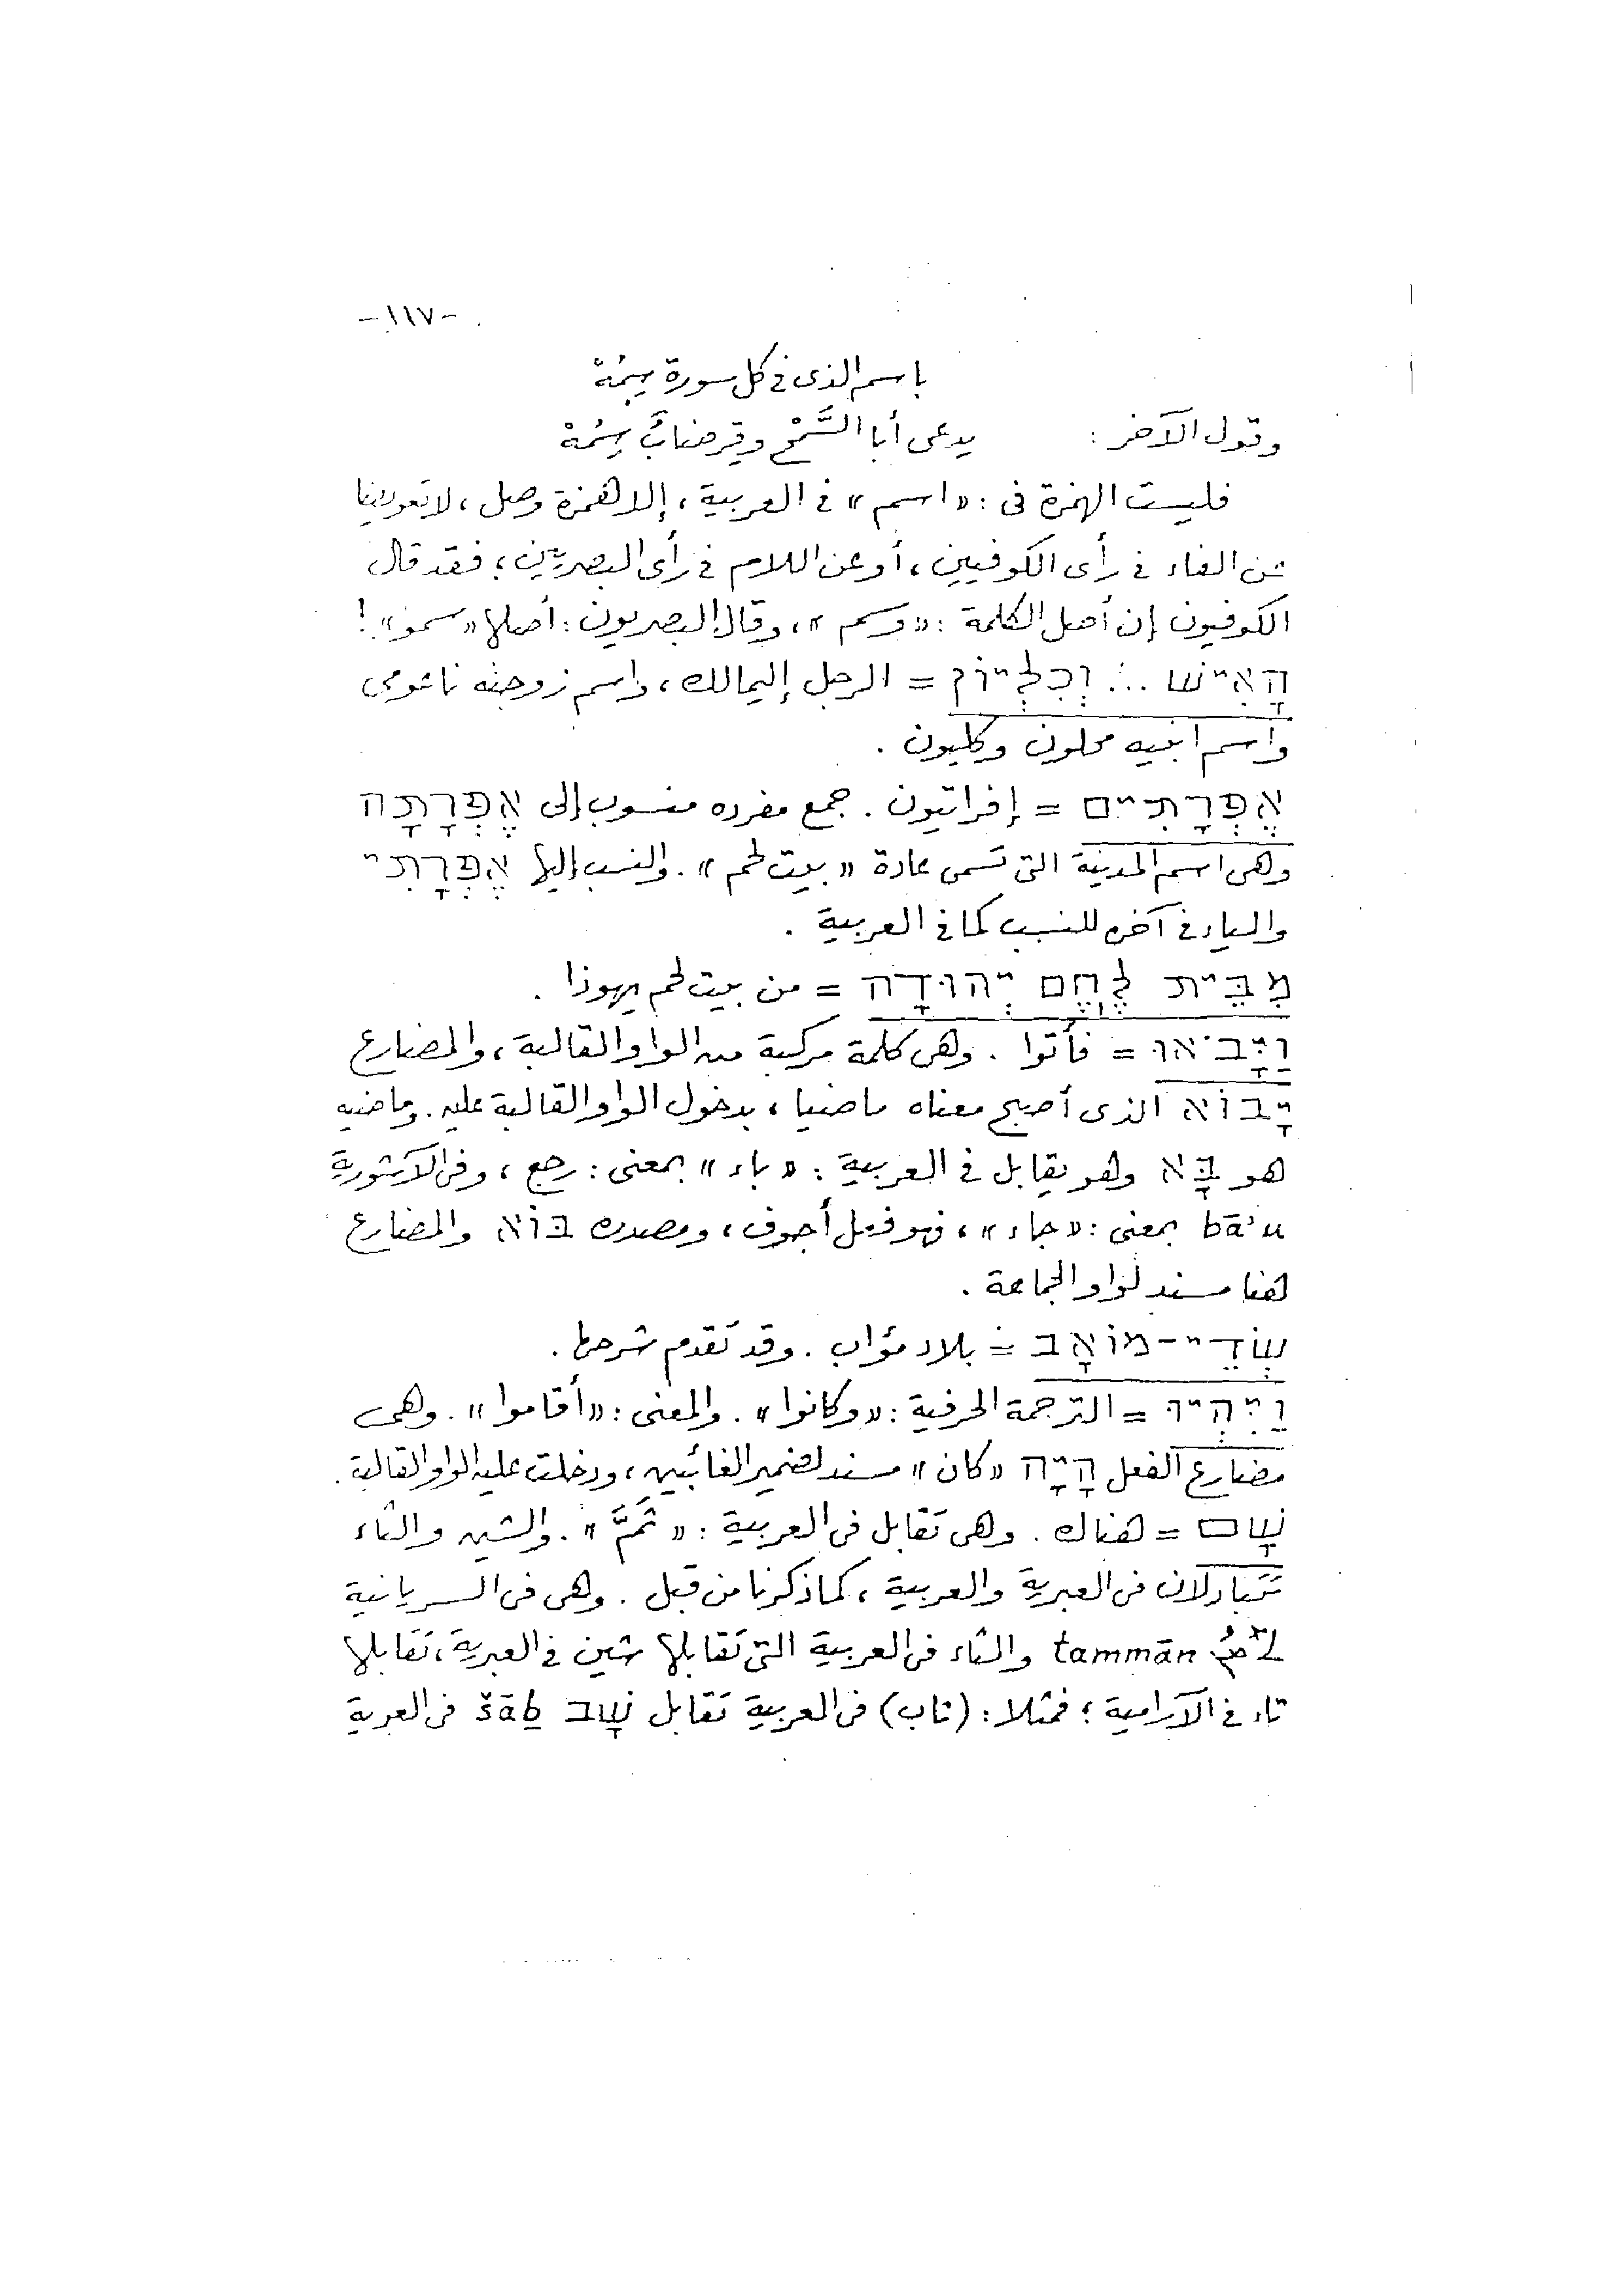 -١١٧-
باسم الذى فى كل سورة سِمُهْ
وقول الآخر : يدعى أبا السَّمْحِ وقِرضابٌ سِمُهْ
فليست الهمزة فى : «اسم» فى العربية ، إلا همزة وصل ، لا تعويضا
عن الفاء فى رأى الكوفيين ، أو عن اللام فى رأى البصريين ؛ فقد قال
الكوفيون إن أصل الكلمة : «وسم» ، وقال البصريون : أصلها «سمو» !
הָאִישׁ ... וְכִלְיוֹן = الرجل إليمالك ، واسم زوجته ناعومى
واسم ابنيه محلون وكليون .
אֶפְרָתִים = إفراتيون . جمع مفرده منسوب إلى אֶפְרָתָה
وهى اسم المدينة التى تسمى عادة «بيت لحم» . والنسب إليها אֶפְרָתִי
والياء فى آخره للنسب كما فى العربية .
מִבֵּית לֶחֶם יְהוּדָה = من بيت لحم يهوذا .
וַיָּבֹאוּ = فأتوا . وهى كلمة مركبة من الواو القالبة ، والمضارع
יָבוֹא الذى أصبح معناه ماضيا ، بدخول الواو القالبة عليه . وماضيه
هو בָּא وهو يقابل فى العربية : «باء» بمعنى : رجع ، وفى الآشورية
bā'u بمعنى : «جاء» ، فهو فعل أجوف ، ومصدره בּוֹא والمضارع
هنا مسند لواو الجماعة .
שְׂדֵי-מוֹאָב = بلاد مؤاب . وقد تقدم شرحها .
וַיִּהְיוּ = الترجمة الحرفية : «وكانوا» . والمعنى : «أقاموا» . وهى
مضارع الفعل הָיָה «كان» مسند لضمير الغائبين ، ودخلت عليه الواو القالبة .
שָׁם = هناك . وهى تقابل فى العربية : «ثَمَّ» . والشين والثاء
تتبادلان فى العبرية والعربية ، كما ذكرنا من قبل . وهى فى السريانية
tammān والثاء فى العربية التى تقابلها شين فى العبرية ، تقابلها
تاء فى الآرامية ؛ فمثلا : (ثاب) فى العربية تقابل שָׁב šāḇ فى العبرية